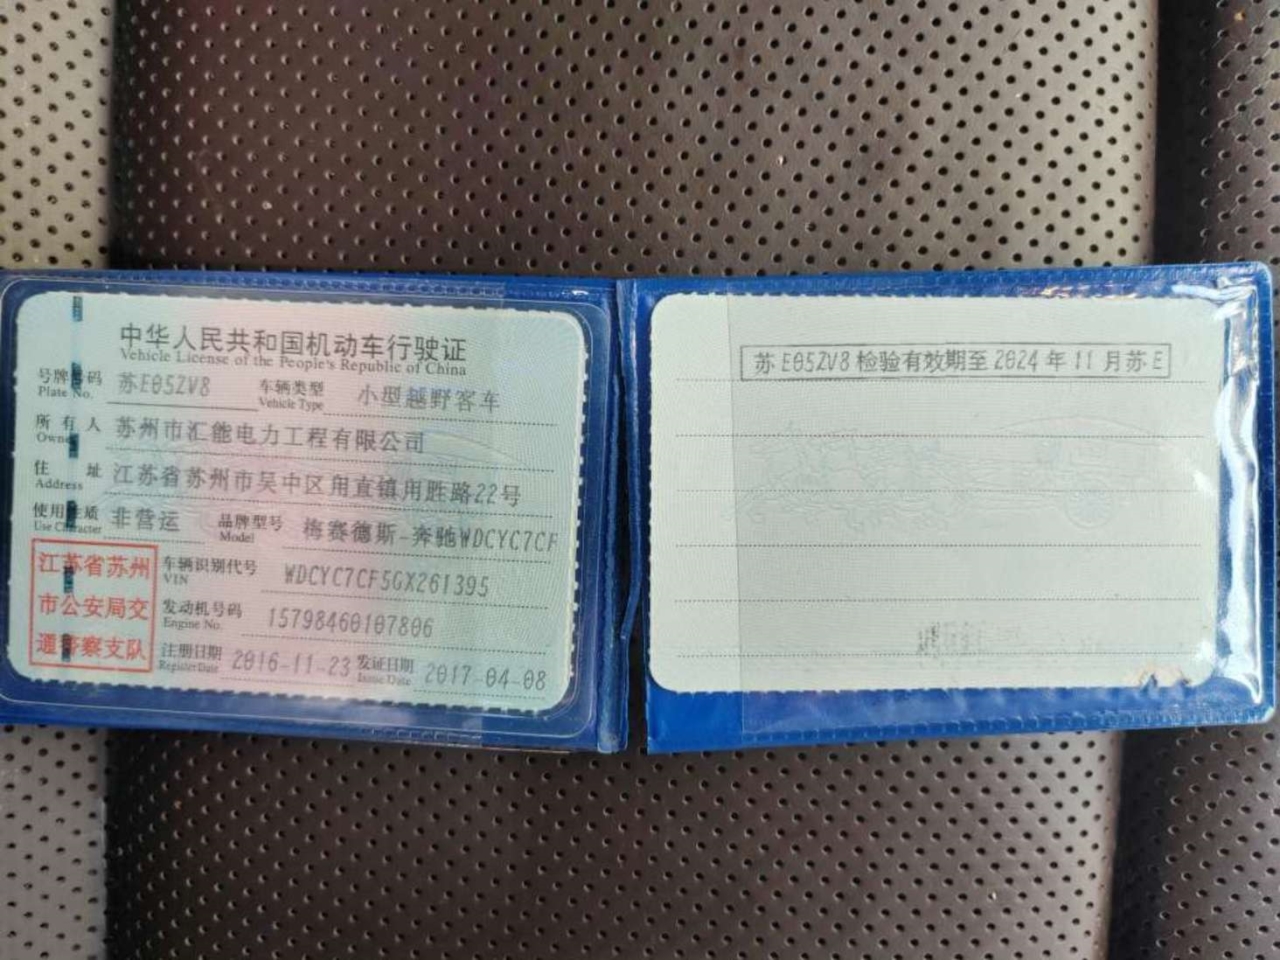 中华人民共和国机动车行驶证
Vehicle License of the People's Republic of China
号牌号码 苏E05ZV8 车辆类型 小型越野客车
Plate No. Vehicle Type
所有人 苏州市汇能电力工程有限公司
Owner
住址 江苏省苏州市吴中区甪直镇甪胜路22号
Address
使用性质 非营运 品牌型号 梅赛德斯-奔驰WDCYC7CF
Use Character Model
江苏省苏州
市公安局交
通警察支队
车辆识别代号 WDCYC7CF5GX261395
VIN
发动机号码 15798460107806
Engine No.
注册日期 2016-11-23 发证日期 2017-04-08
Register Date Issue Date
苏E05ZV8检验有效期至2024年11月苏E